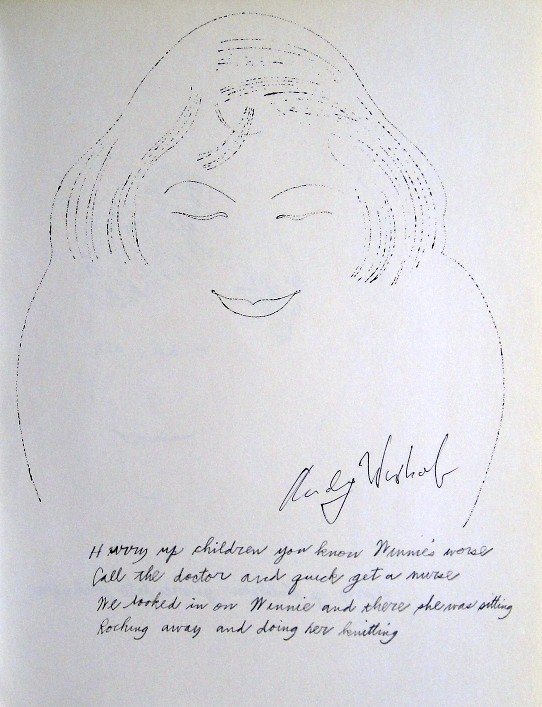 Andy Warhol
Hurry up children you know Winnie's worse
Call the doctor and quick get a nurse
We looked in on Winnie and there she was sitting
Rocking away and doing her knitting